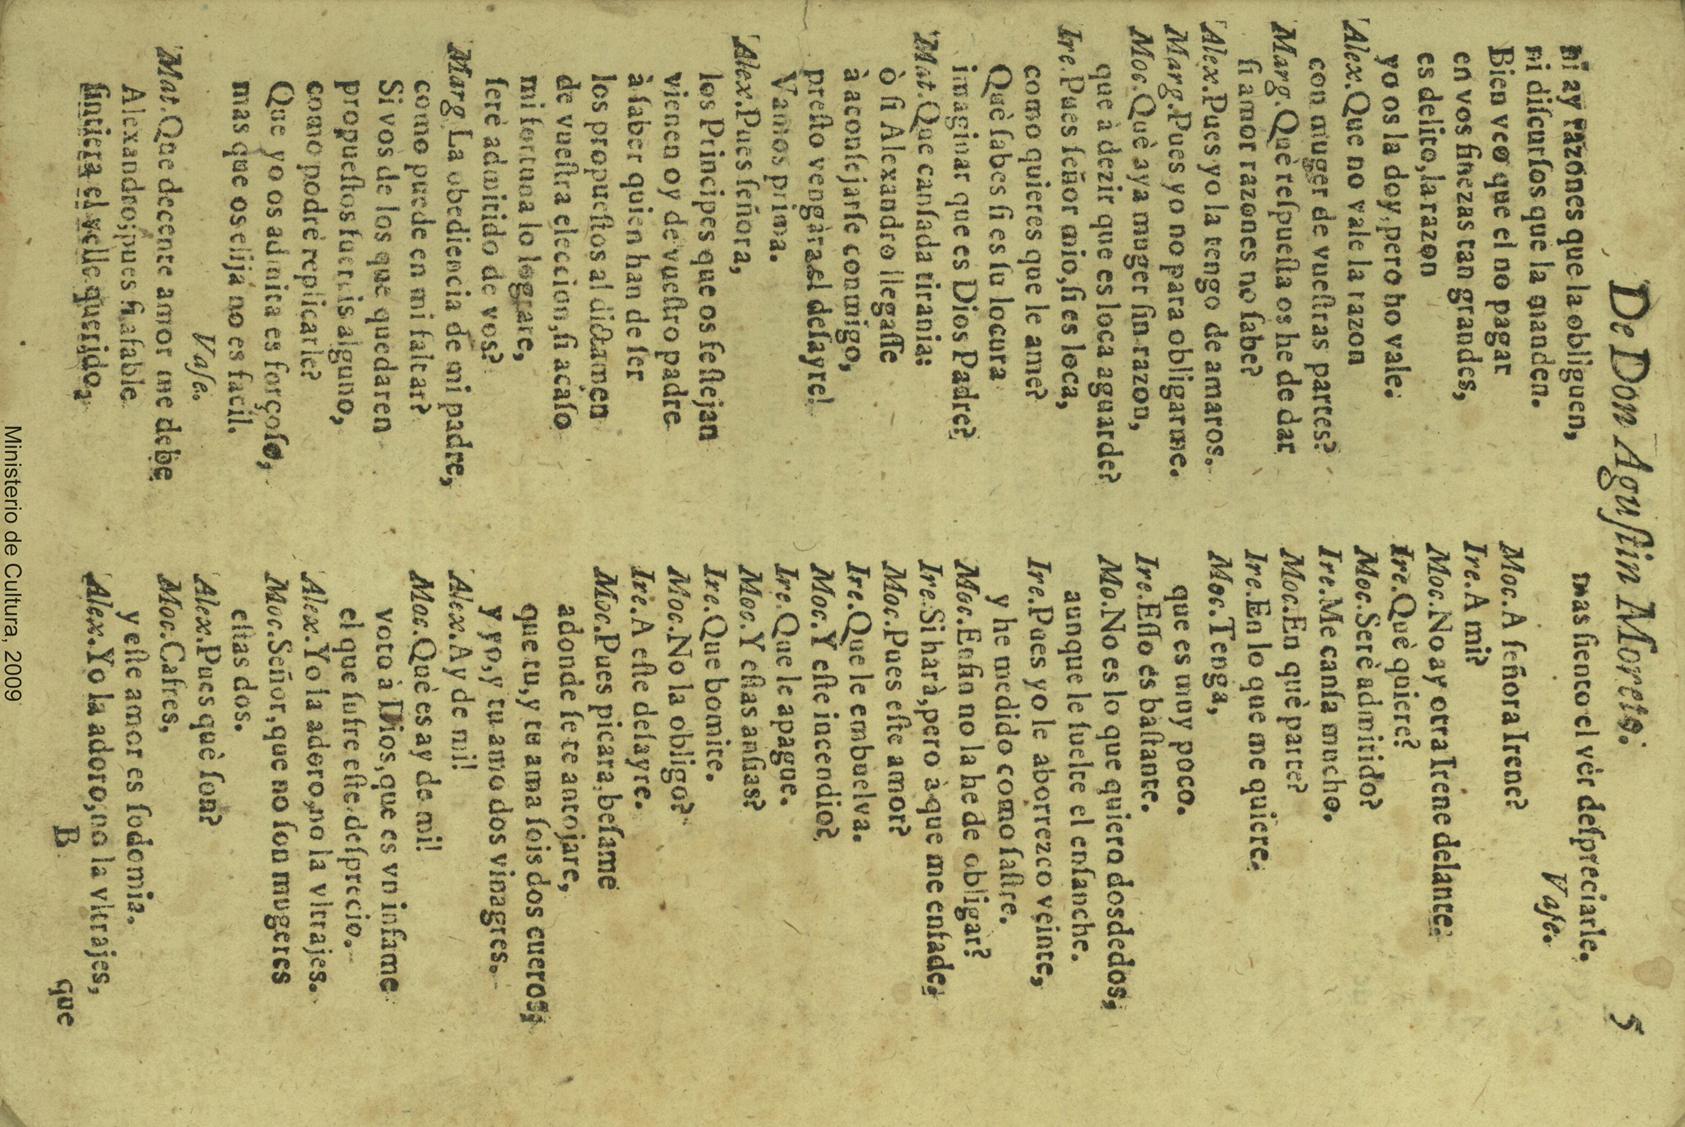 De Don Agustin Moreto. 5
ni ay razones que la obliguen,
ni discursos que la manden.
Bien veo que el no pagar
en vos finezas tan grandes,
es delito, la razon
yo os la doy, pero no vale.
Alex. Que no vale la razon
con muger de vuestras partes?
Marg. Què respuesta os he de dar
si amor razones no sabe?
Alex. Pues yo la tengo de amaros.
Marg. Pues yo no para obligarme.
Moc. Què aya muger sin razon,
que à dezir que es loca aguarde?
Ire. Pues señor mio, si es loca,
como quieres que le ame?
Què sabes si es su locura
imaginar que es Dios Padre?
Mat. Que cansada tirania:
ò si Alexandro llegasse
à aconsejarse conmigo,
presto vengàra el desayre!
Vamos prima.
Alex. Pues señora,
los Principes que os festejan
vienen oy de vuestro padre
à saber quien han de ser
los propuestos al dictamen
de vuestra eleccion, si acaso
mi fortuna lo lograre,
serè admitido de vos?
Marg. La obediencia de mi padre,
como puede en mi faltar?
Si vos de los que quedaren
propuestos fuereis alguno,
como podrè replicarle?
Que yo os admita es forçoso,
mas que os elija no es facil.
Vase.
Mat. Que decente amor me debe
Alexandro; pues si afable
sintiera el velle querido,
mas siento el vèr despreciarle.
Vase.
Moc. A señora Irene?
Ire. A mi?
Moc. No ay otra Irene delante.
Ire. Què quiere?
Moc. Serè admitido?
Ire. Me cansa mucho.
Moc. En què parte?
Ire. En lo que me quiere.
Moc. Tenga,
que es muy poco.
Ire. Esso es bastante.
Mo. No es lo que quiero dos dedos,
aunque le suelte el ensanche.
Ire. Pues yo le aborrezco veinte,
y he medido como sastre.
Moc. Enfin no la he de obligar?
Ire. Si harà, pero à que me enfade.
Moc. Pues este amor?
Ire. Que le embuelva.
Moc. Y este incendio?
Ire. Que le apague.
Moc. Y estas ansias?
Ire. Que bomite.
Moc. No la obligo?
Ire. A este desayre.
Moc. Pues picara, besame
adonde se te antojare,
que tu, y tu ama sois dos cueros,
y yo, y tu amo dos vinagres.
Alex. Ay de mi!
Moc. Què es ay de mi!
voto à Dios, que es vn infame
el que sufre este desprecio.
Alex. Yo la adoro, no la vltrajes.
Moc. Señor, que no son mugeres
estas dos.
Alex. Pues què son?
Moc. Cafres,
y este amor es sodomia.
Alex. Yo la adoro, no la vltrajes,
B que
Ministerio de Cultura, 2009